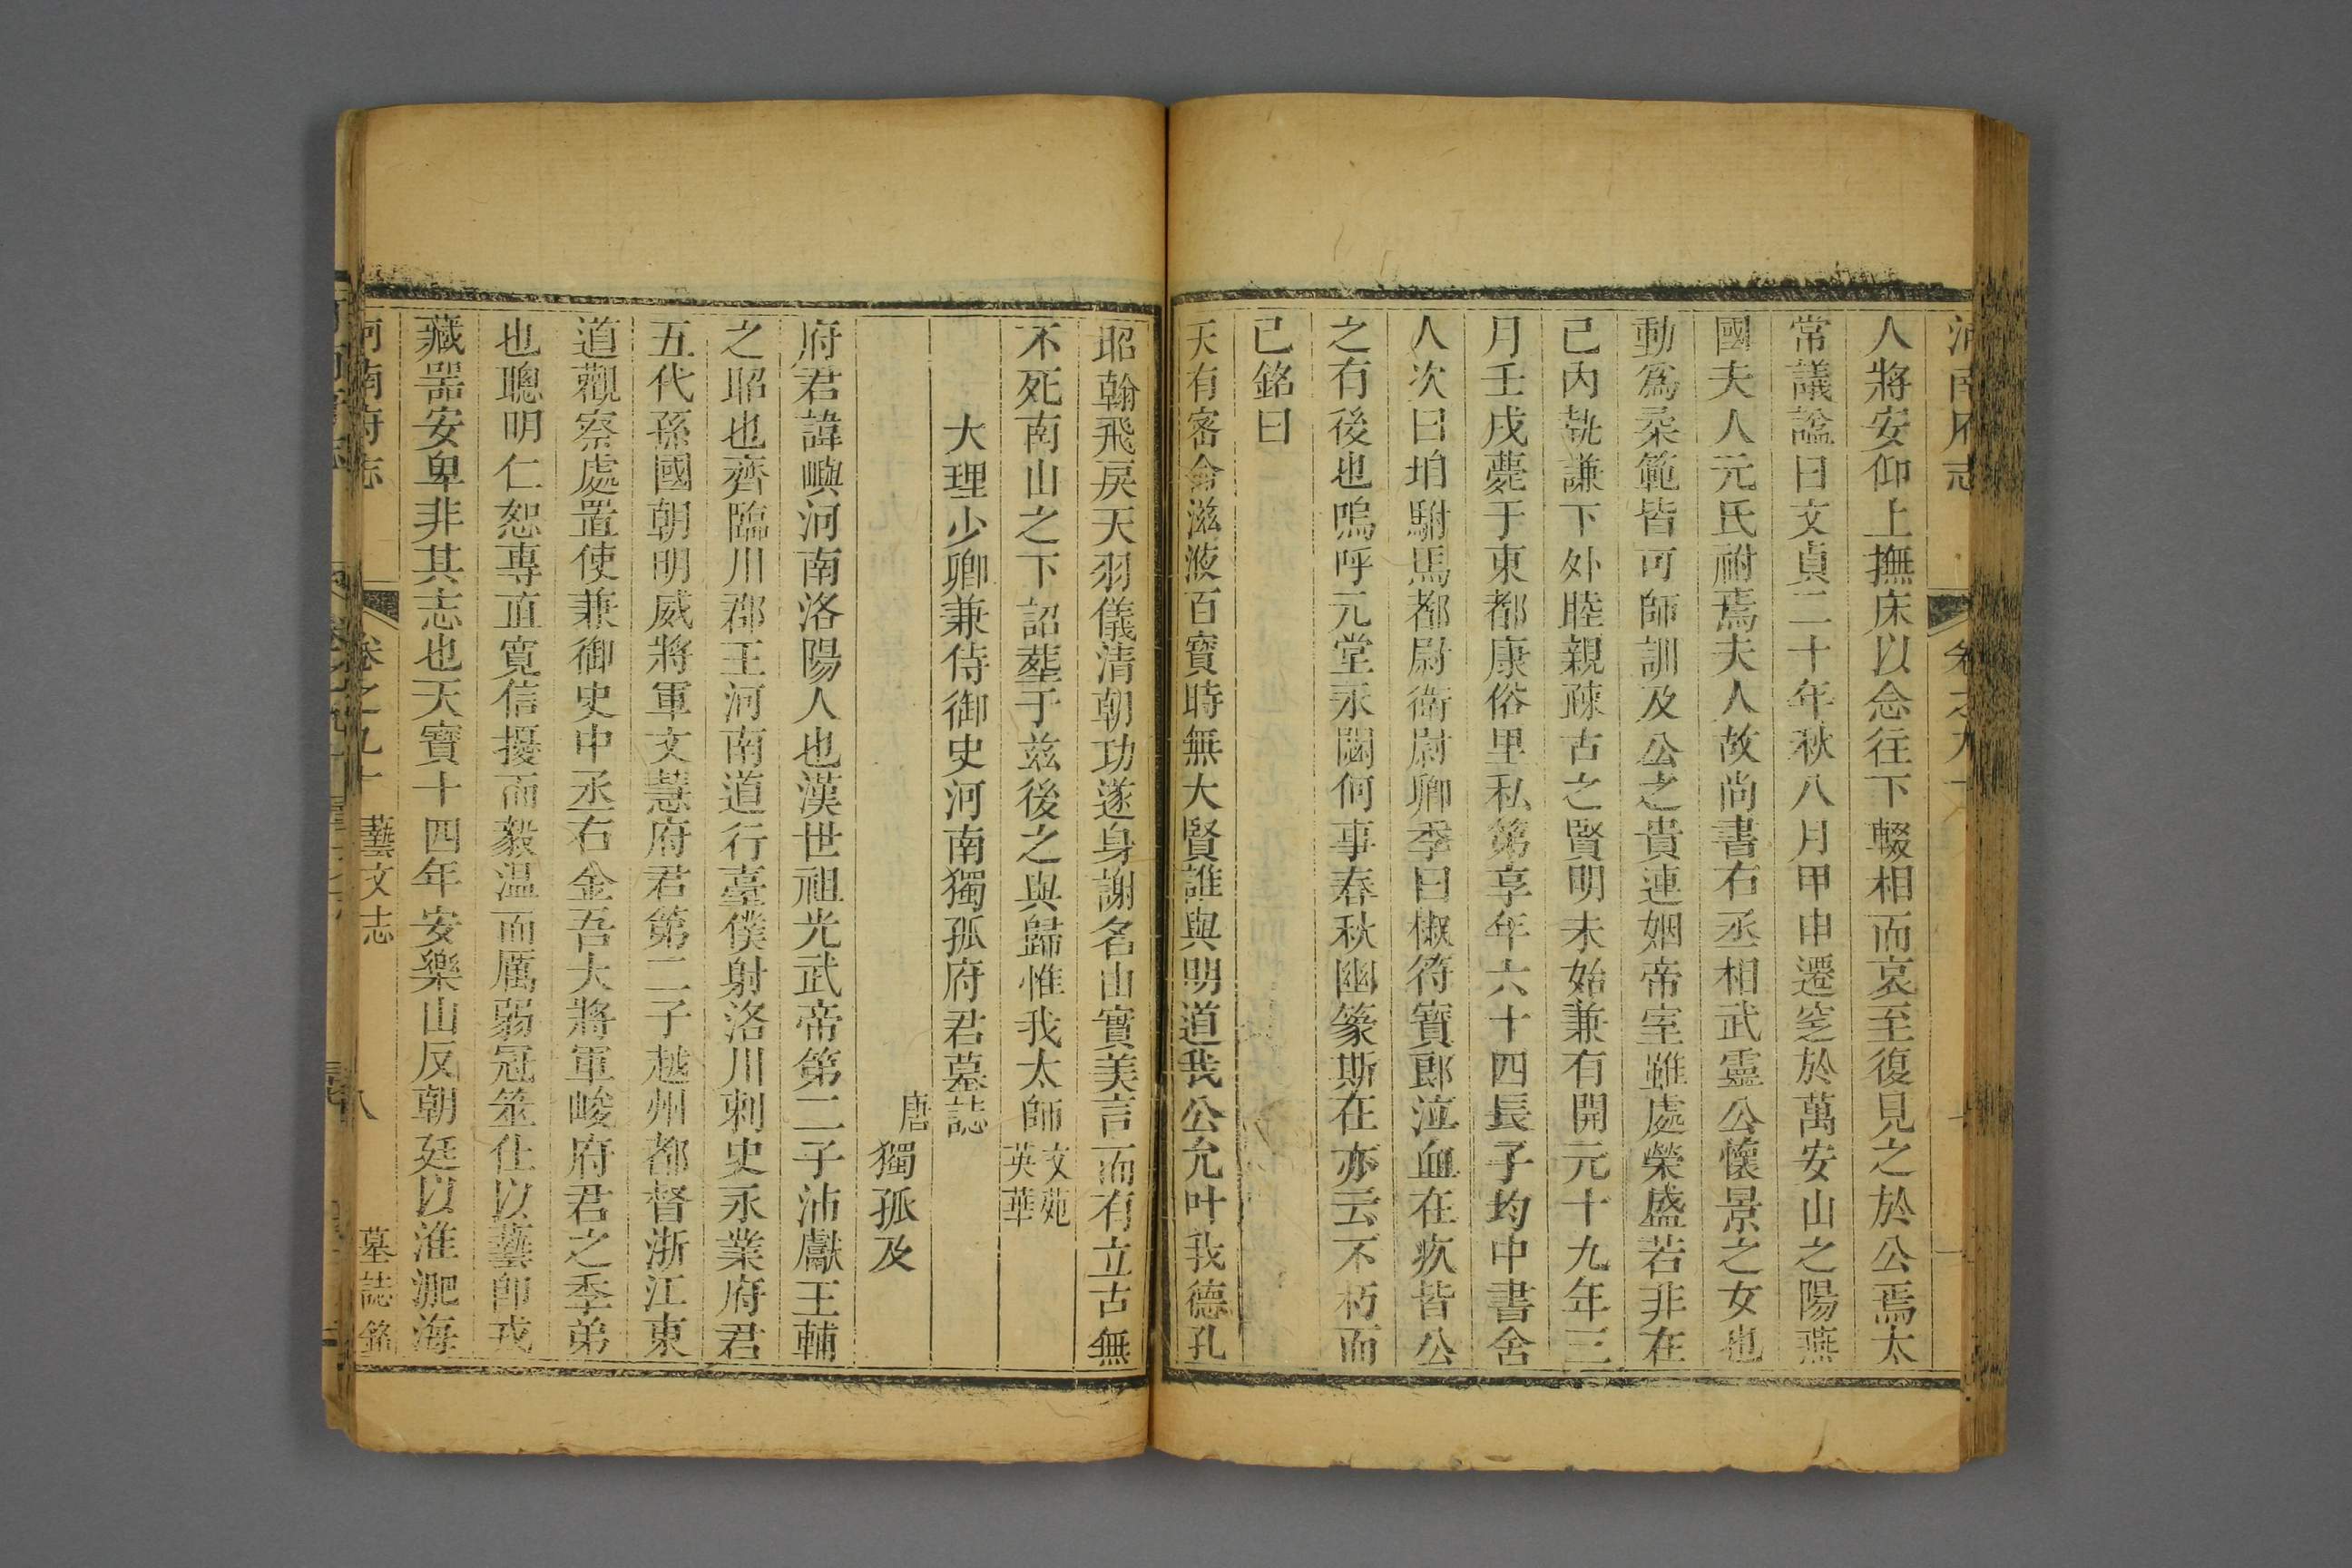 河南府志 卷之九十
人將安仰上撫床以念往下輟相而哀至復見之於公焉太
常議諡曰文貞二十年秋八月甲申遷窆於萬安山之陽燕
國夫人元氏祔焉夫人故尚書右丞相武靈公懷景之女也
動爲柔範皆可師訓及公之貴連姻帝室雖處榮盛若非在
己內執謙下外睦親疎古之賢明未始兼有開元十九年三
月壬戌薨于東都康俗里私第享年六十四長子均中書舍
人次曰垍駙馬都尉衛尉卿季曰椒符寶郎泣血在疚皆公
之有後也嗚呼元堂永閟何事春秋幽篆斯在亦云不朽而
已銘曰
天有密命滋液百寶時無大賢誰與明道我公允叶我德孔
昭翰飛戾天羽儀清朝功遂身謝名山實美言而有立古無
不死南山之下詔塟于兹後之與歸惟我太師文苑英華
大理少卿兼侍御史河南獨孤府君墓誌
唐獨孤及
府君諱嶼河南洛陽人也漢世祖光武帝第二子沛獻王輔
之昭也齊臨川郡王河南道行臺僕射洛川刺史永業府君
五代孫國朝明威將軍文慧府君第二子越州都督浙江東
道觀察處置使兼御史中丞右金吾大將軍峻府君之季弟
也聰明仁恕專直寬信擾而毅温而厲弱冠筮仕以藝卽戎
藏噐安卑非其志也天寶十四年安樂山反朝廷以淮淝海
河南府志 卷之九十 藝文志 八 墓誌銘